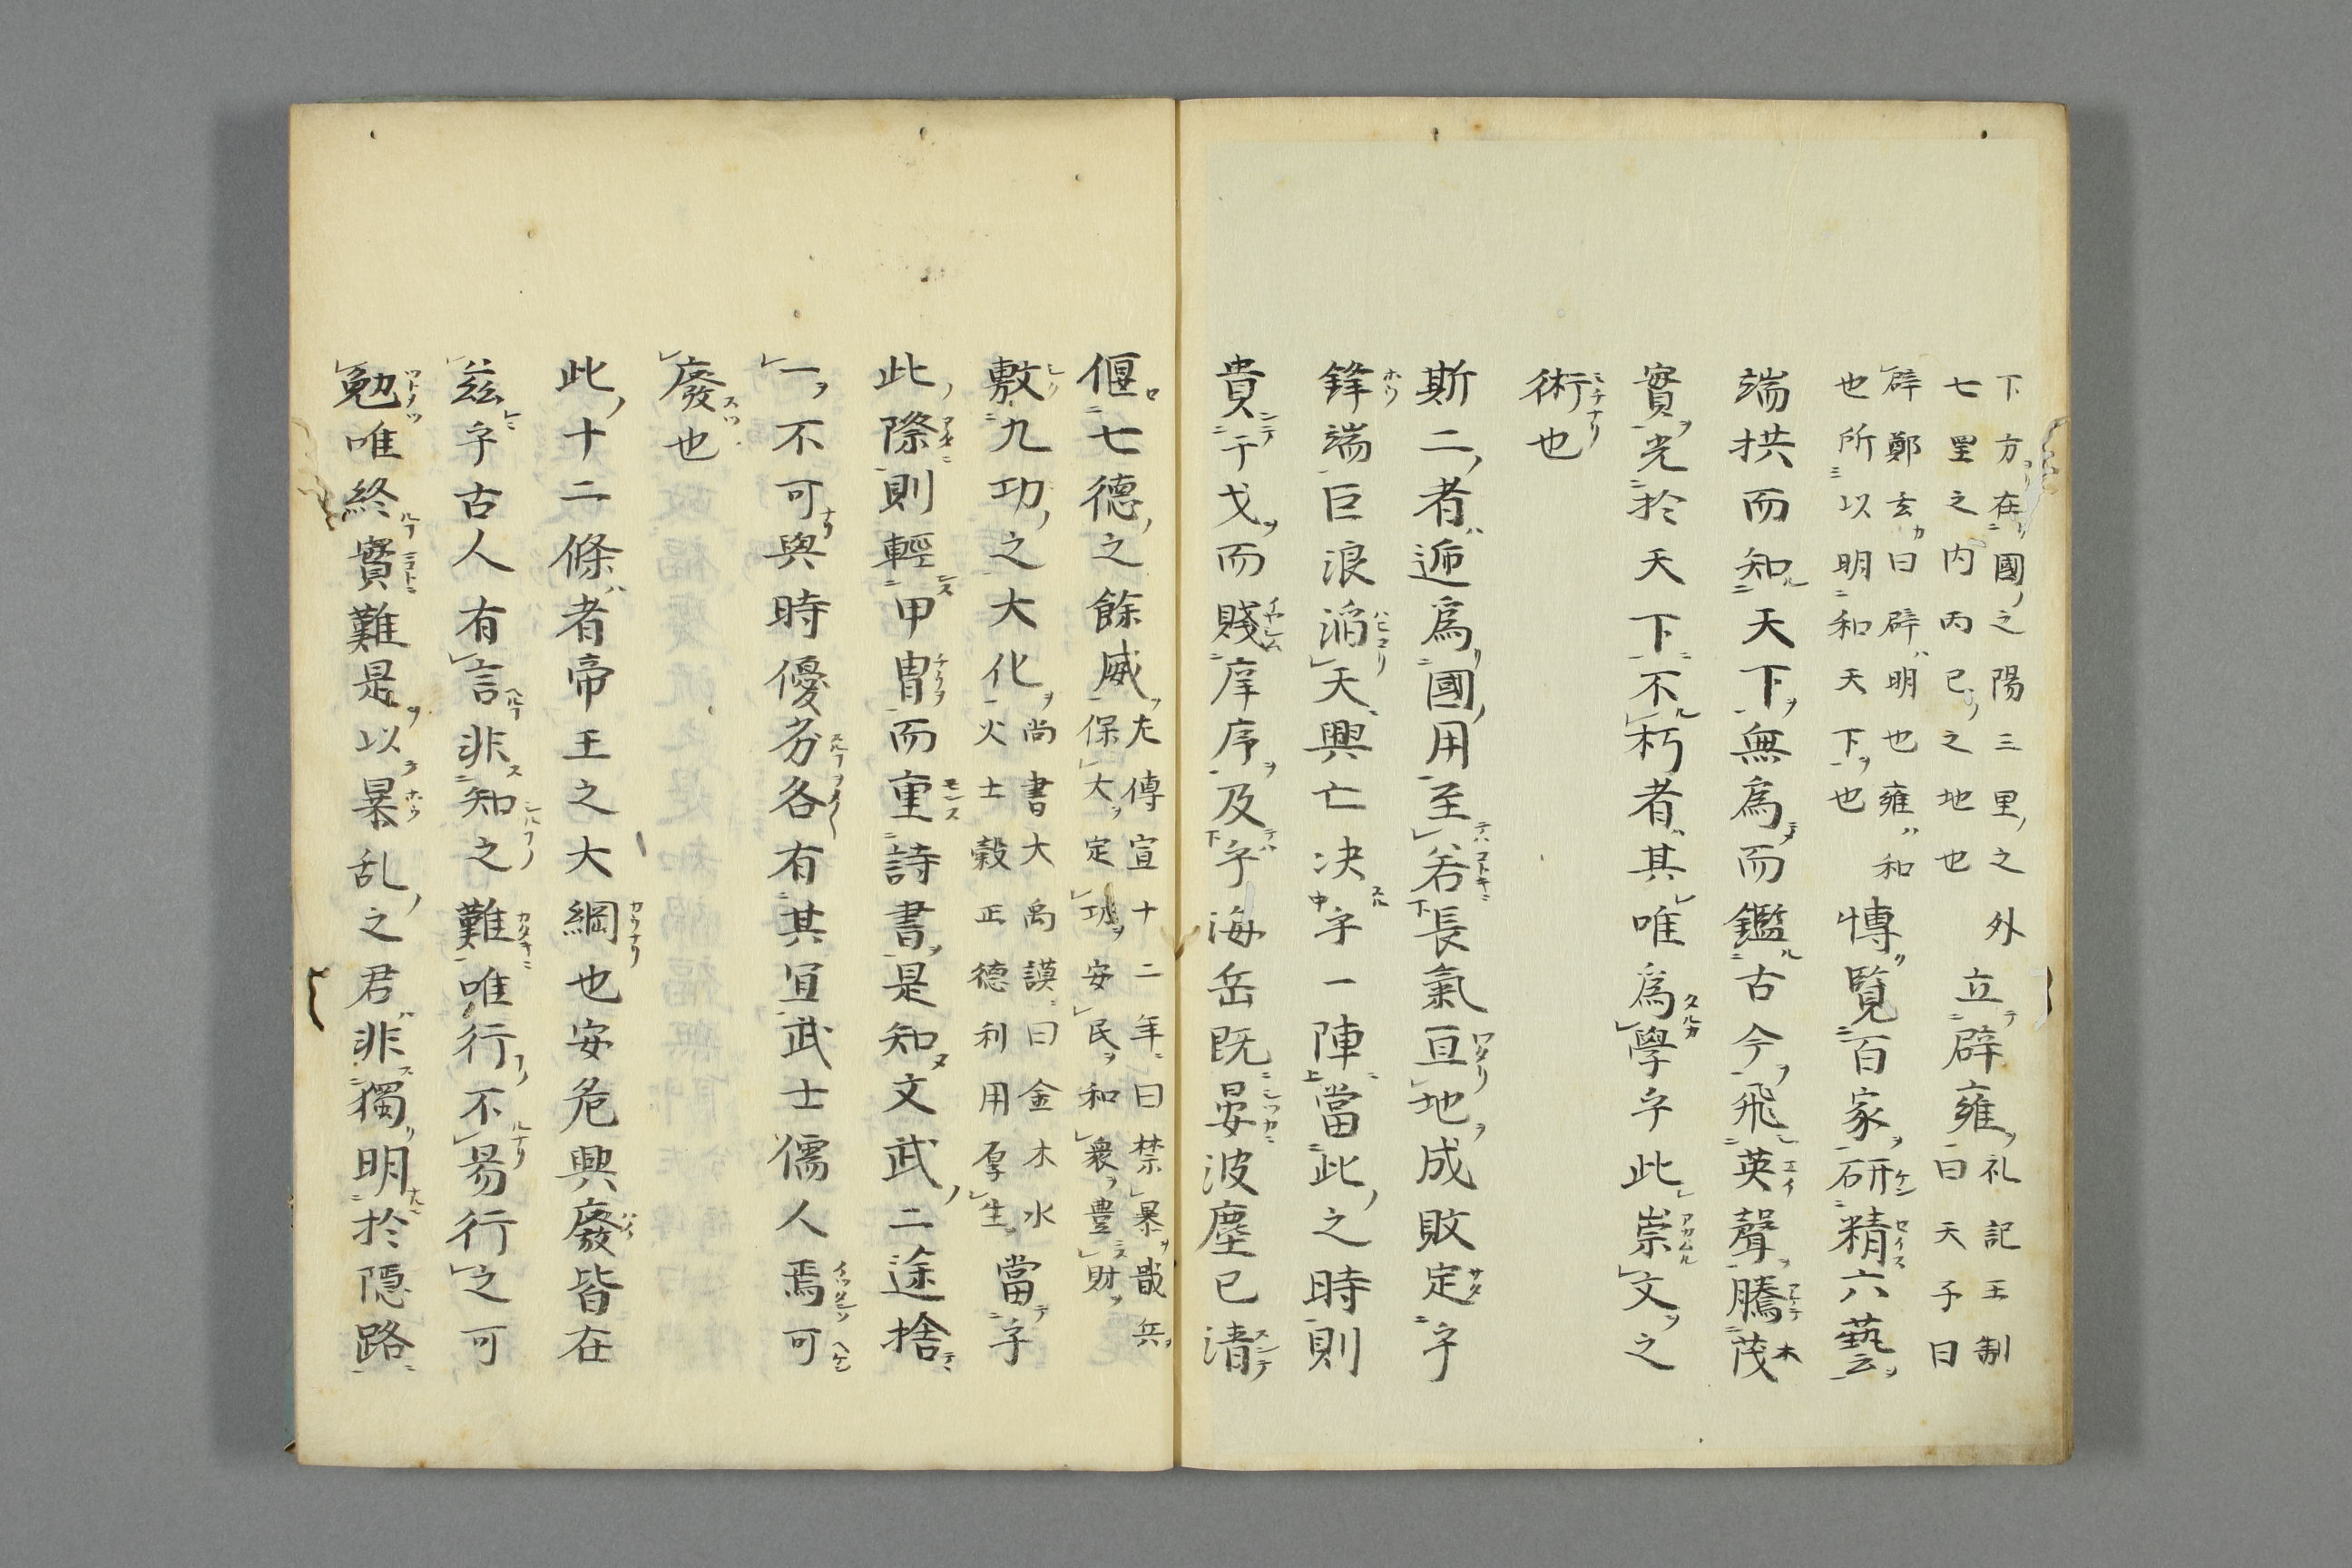 下方在國之陽三里之外
七里之内丙巳之地也
立辟雍
礼記王制
曰天子曰
辟鄭玄曰辟明也雍和
也所以明和天下也
博覧百家研精六藝
端拱而知天下無爲而鑑古今飛英聲騰茂
實光於天下不朽者其唯爲學乎此崇文之
術也
斯二者逓爲國用至若長氣亘地成敗定乎
鋒端巨浪滔天興亡决乎一陣當此之時則
貴干戈而賤庠序及乎海岳既晏波塵已清
偃七德之餘威
左傳宣十二年曰禁暴戢兵
保大定功安民和衆豊財
敷九功之大化
尚書大禹謨曰金木水
火土穀正德利用厚生
當乎
此際則輕甲冑而重詩書是知文武二途捨
一不可與時優劣各有其宜武士儒人焉可
廢也
此十二條者帝王之大綱也安危興廢皆在
茲乎古人有言非知之難唯行不易行之可
勉唯終實難是以暴乱之君非獨明於隠路